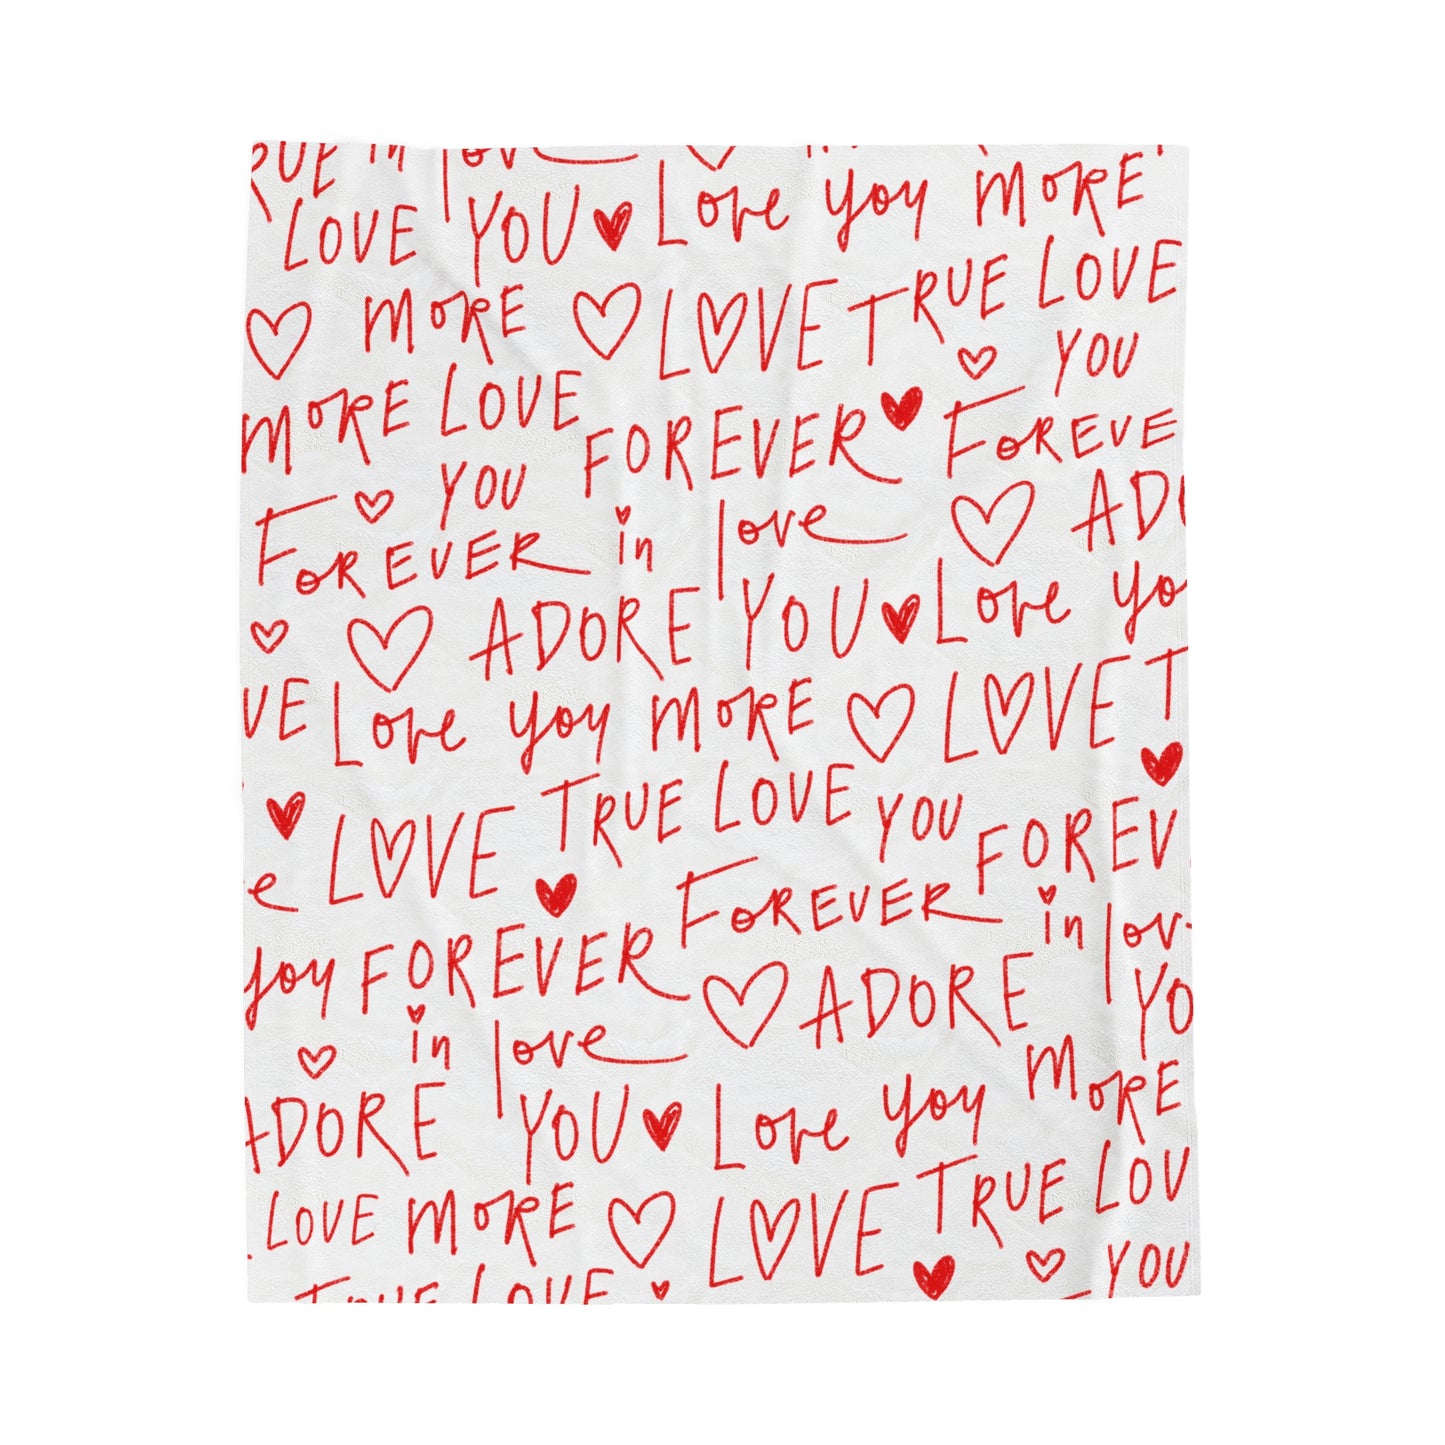 TRUE in love
LOVE YOU Love you MORE
MORE LOVE TRUE LOVE
MORE LOVE YOU
FOREVER FOREVE
YOU
FOREVER in love ADO
ADORE YOU Love yo
VE Love you MORE LOVE T
TRUE LOVE YOU
e LOVE FOREV
FOREVER in lov
you FOREVER ADORE YO
in love
ADORE YOU Love you MORE
LOVE MORE LOVE TRUE LOV
YOU
TRUE LOVE